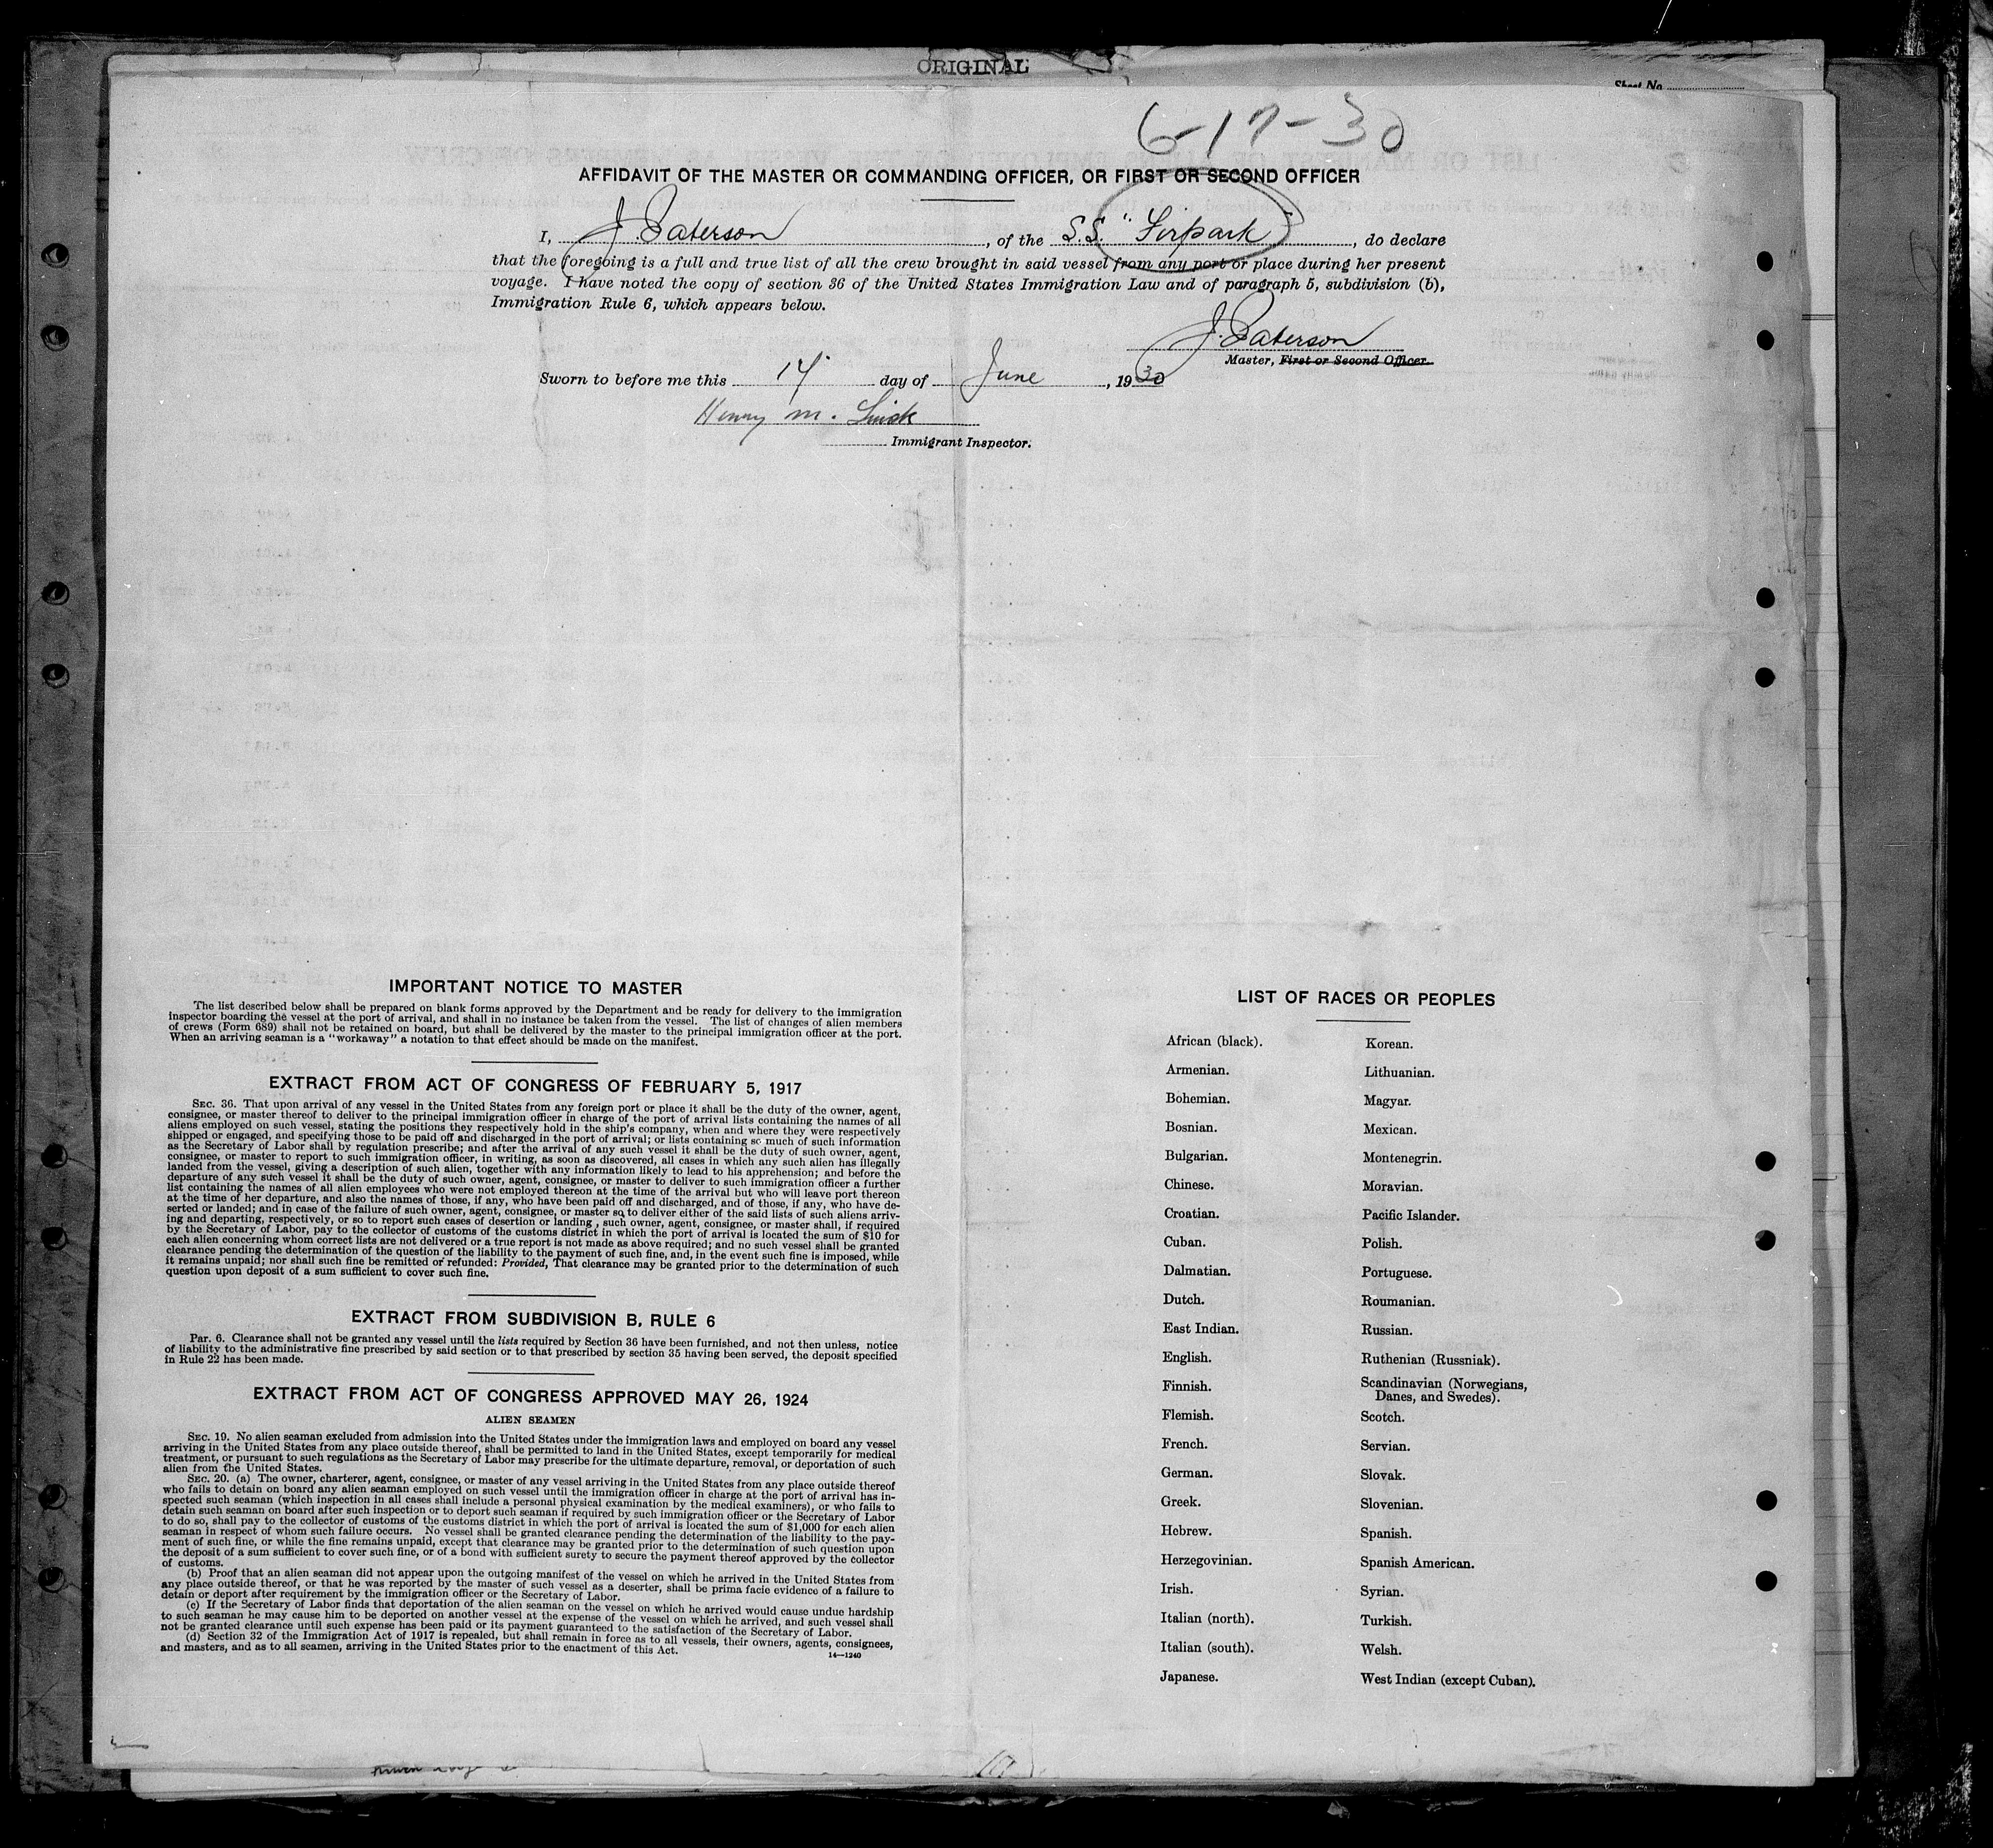 ORIGINAL
Sheet No.
6-17-30
AFFIDAVIT OF THE MASTER OR COMMANDING OFFICER, OR FIRST OR SECOND OFFICER
I, J Paterson, of the S.S. "Firpark", do declare
that the foregoing is a full and true list of all the crew brought in said vessel from any port or place during her present
voyage. I have noted the copy of section 36 of the United States Immigration Law and of paragraph 5, subdivision (b),
Immigration Rule 6, which appears below.
J. Paterson
Master, First or Second Officer.
Sworn to before me this 14 day of June, 1930
Henry M.
Immigrant Inspector.
IMPORTANT NOTICE TO MASTER
The list described below shall be prepared on blank forms approved by the Department and be ready for delivery to the immigration
inspector boarding the vessel at the port of arrival, and shall in no instance be taken from the vessel. The list of changes of alien members
of crews (Form 689) shall not be retained on board, but shall be delivered by the master to the principal immigration officer at the port.
When an arriving seaman is a "workaway" a notation to that effect should be made on the manifest.
EXTRACT FROM ACT OF CONGRESS OF FEBRUARY 5, 1917
SEC. 36. That upon arrival of any vessel in the United States from any foreign port or place it shall be the duty of the owner, agent,
consignee, or master thereof to deliver to the principal immigration officer in charge of the port of arrival lists containing the names of all
aliens employed on such vessel, stating the positions they respectively hold in the ship's company, when and where they were respectively
shipped or engaged, and specifying those to be paid off and discharged in the port of arrival; or lists containing so much of such information
as the Secretary of Labor shall by regulation prescribe; and after the arrival of any such vessel it shall be the duty of such owner, agent,
consignee, or master to report to such immigration officer, in writing, as soon as discovered, all cases in which any such alien has illegally
landed from the vessel, giving a description of such alien, together with any information likely to lead to his apprehension; and before the
departure of any such vessel it shall be the duty of such owner, agent, consignee, or master to deliver to such immigration officer a further
list containing the names of all alien employees who were not employed thereon at the time of the arrival but who will leave port thereon
at the time of her departure, and also the names of those, if any, who have been paid off and discharged, and of those, if any, who have de-
serted or landed; and in case of the failure of such owner, agent, consignee, or master so to deliver either of the said lists of such aliens arriv-
ing and departing, respectively, or so to report such cases of desertion or landing, such owner, agent, consignee, or master shall, if required
by the Secretary of Labor, pay to the collector of customs of the customs district in which the port of arrival is located the sum of $10 for
each alien concerning whom correct lists are not delivered or a true report is not made as above required; and no such vessel shall be granted
clearance pending the determination of the question of the liability to the payment of such fine, and, in the event such fine is imposed, while
it remains unpaid; nor shall such fine be remitted or refunded: Provided, That clearance may be granted prior to the determination of such
question upon deposit of a sum sufficient to cover such fine.
EXTRACT FROM SUBDIVISION B, RULE 6
Par. 6. Clearance shall not be granted any vessel until the lists required by Section 36 have been furnished, and not then unless, notice
of liability to the administrative fine prescribed by said section or to that prescribed by section 35 having been served, the deposit specified
in Rule 22 has been made.
EXTRACT FROM ACT OF CONGRESS APPROVED MAY 26, 1924
ALIEN SEAMEN
SEC. 19. No alien seaman excluded from admission into the United States under the immigration laws and employed on board any vessel
arriving in the United States from any place outside thereof, shall be permitted to land in the United States, except temporarily for medical
treatment, or pursuant to such regulations as the Secretary of Labor may prescribe for the ultimate departure, removal, or deportation of such
alien from the United States.
SEC. 20. (a) The owner, charterer, agent, consignee, or master of any vessel arriving in the United States from any place outside thereof
who fails to detain on board any alien seaman employed on such vessel until the immigration officer in charge at the port of arrival has in-
spected such seaman (which inspection in all cases shall include a personal physical examination by the medical examiners), or who fails to
detain such seaman on board after such inspection or to deport such seaman if required by such immigration officer or the Secretary of Labor
to do so, shall pay to the collector of customs of the customs district in which the port of arrival is located the sum of $1,000 for each alien
seaman in respect of whom such failure occurs. No vessel shall be granted clearance pending the determination of the liability to the pay-
ment of such fine, or while the fine remains unpaid, except that clearance may be granted prior to the determination of such question upon
the deposit of a sum sufficient to cover such fine, or of a bond with sufficient surety to secure the payment thereof approved by the collector
of customs.
(b) Proof that an alien seaman did not appear upon the outgoing manifest of the vessel on which he arrived in the United States from
any place outside thereof, or that he was reported by the master of such vessel as a deserter, shall be prima facie evidence of a failure to
detain or deport after requirement by the immigration officer or the Secretary of Labor.
(c) If the Secretary of Labor finds that deportation of the alien seaman on the vessel on which he arrived would cause undue hardship
to such seaman he may cause him to be deported on another vessel at the expense of the vessel on which he arrived, and such vessel shall
not be granted clearance until such expense has been paid or its payment guaranteed to the satisfaction of the Secretary of Labor.
(d) Section 32 of the Immigration Act of 1917 is repealed, but shall remain in force as to all vessels, their owners, agents, consignees,
and masters, and as to all seamen, arriving in the United States prior to the enactment of this Act.
14—1240
LIST OF RACES OR PEOPLES
African (black).
Armenian.
Bohemian.
Bosnian.
Bulgarian.
Chinese.
Croatian.
Cuban.
Dalmatian.
Dutch.
East Indian.
English.
Finnish.
Flemish.
French.
German.
Greek.
Hebrew.
Herzegovinian.
Irish.
Italian (north).
Italian (south).
Japanese.
Korean.
Lithuanian.
Magyar.
Mexican.
Montenegrin.
Moravian.
Pacific Islander.
Polish.
Portuguese.
Roumanian.
Russian.
Ruthenian (Russniak).
Scandinavian (Norwegians,
Danes, and Swedes).
Scotch.
Servian.
Slovak.
Slovenian.
Spanish.
Spanish American.
Syrian.
Turkish.
Welsh.
West Indian (except Cuban).